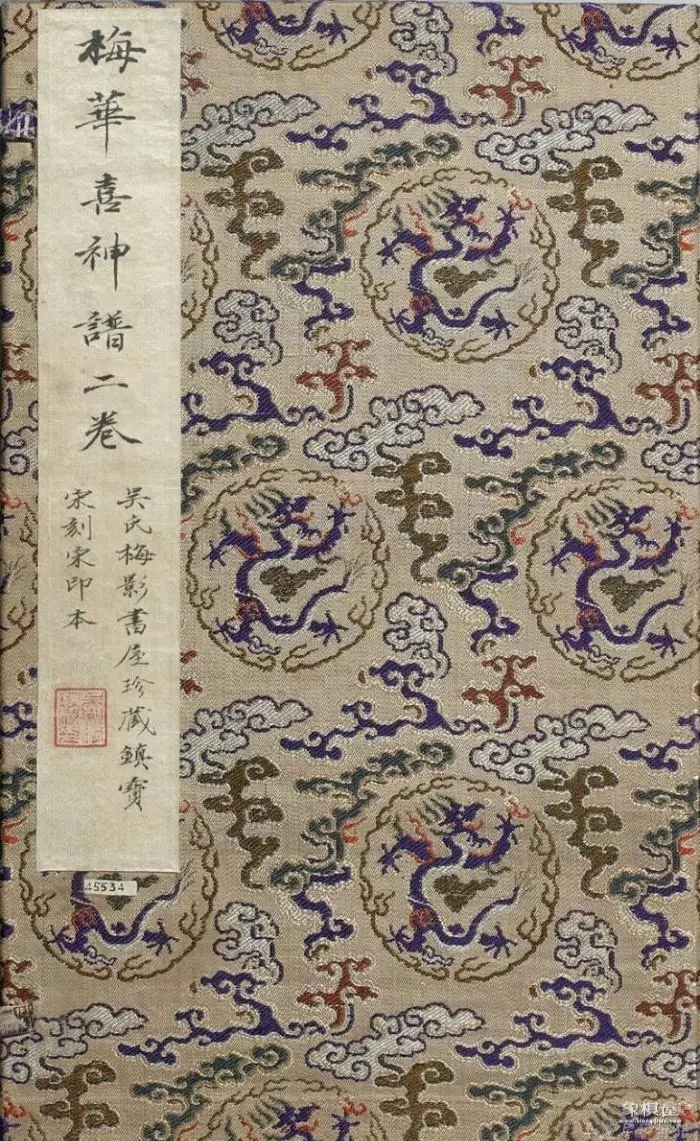 梅華喜神譜二卷
吳氏梅影書屋珍藏鎮寶
宋刻宋印本
45534
象棋屋